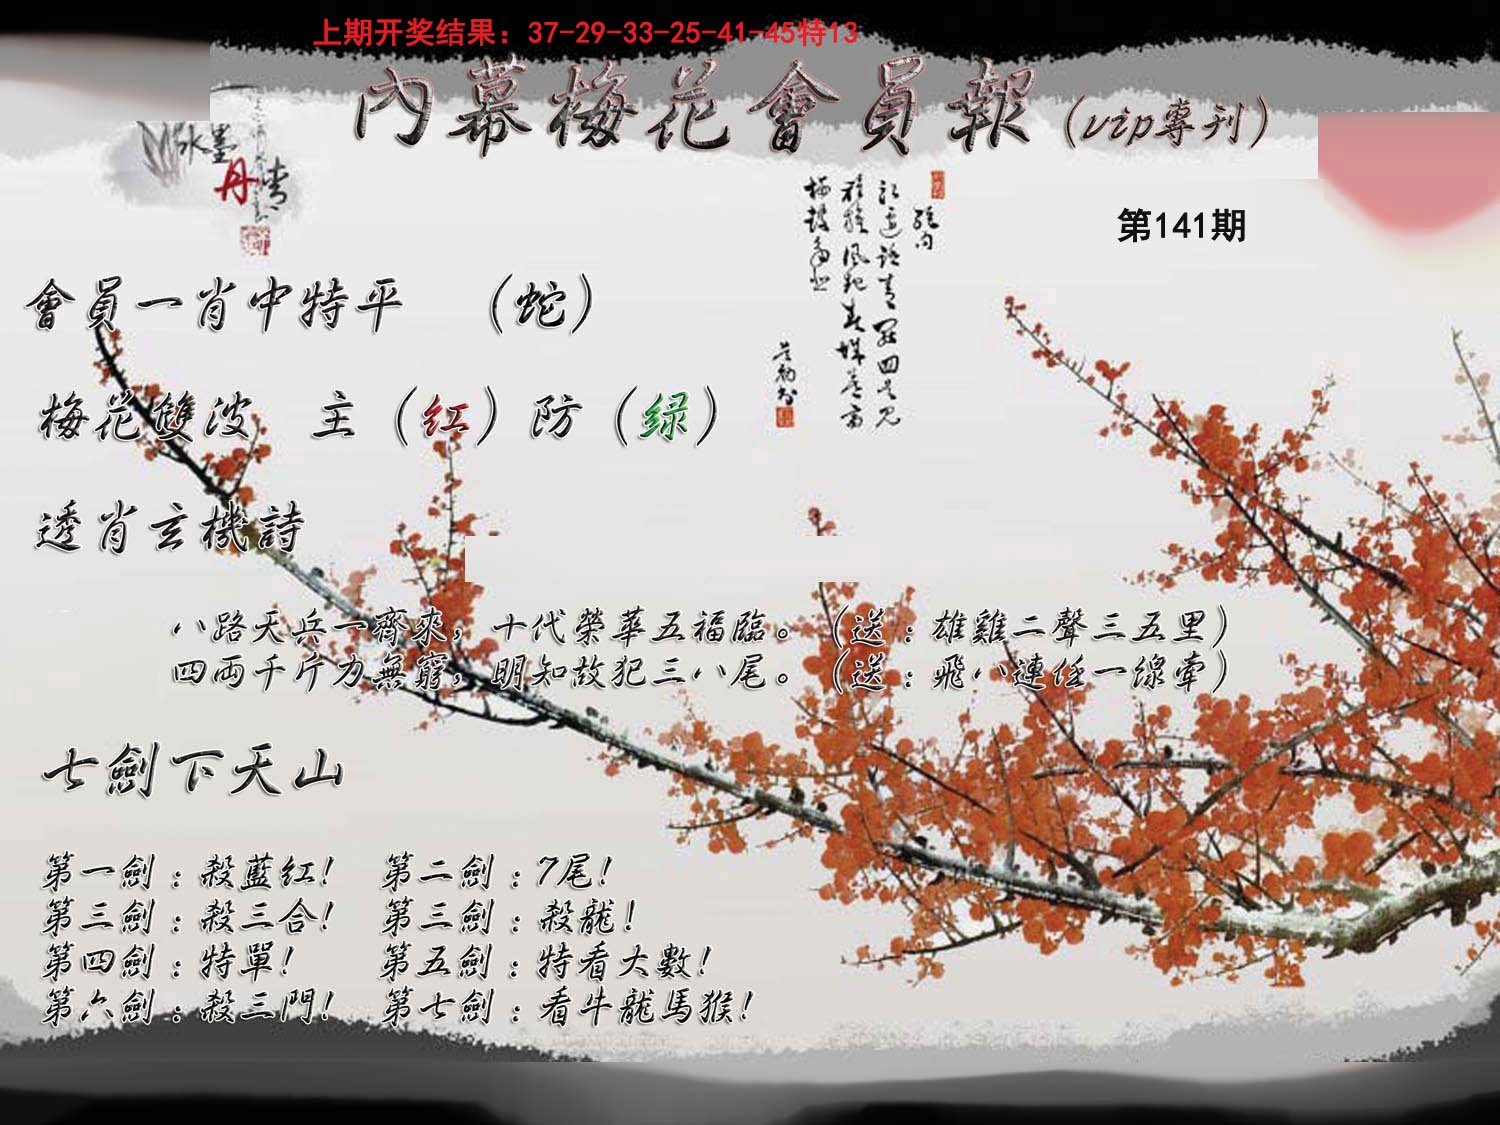 上期开奖结果：37-29-33-25-41-45特13
內幕梅花會員報（vip專刊）
水墨
丹情
第141期
會員一肖中特平　（蛇）
梅花雙波　主（红）防（绿）
透肖玄機詩
八路天兵一齊來，十代榮華五福臨。（送：雄雞二聲三五里）
四両千斤力無窮，明知故犯三八尾。（送：飛八連任一線牽）
七劍下天山
第一劍：殺藍紅！　第二劍：7尾！
第三劍：殺三合！　第三劍：殺龍！
第四劍：特單！　第五劍：特看大數！
第六劍：殺三門！　第七劍：看牛龍馬猴！